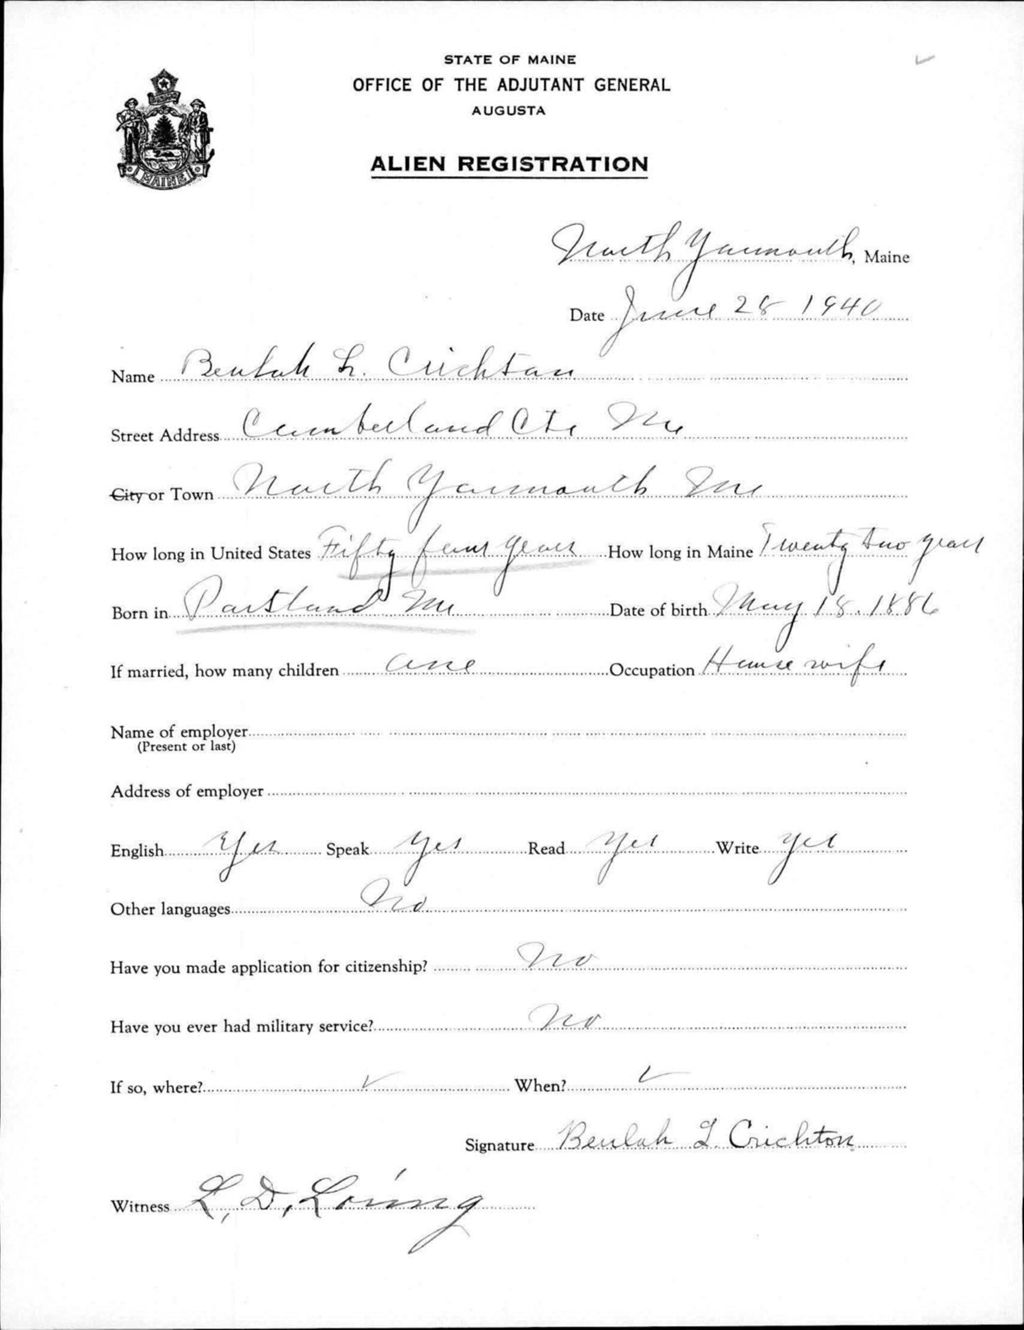 STATE OF MAINE
OFFICE OF THE ADJUTANT GENERAL
AUGUSTA
ALIEN REGISTRATION
MAINE
North Yarmouth, Maine
Date June 28 1940
Name Beulah L. Crichton
Street Address Cumberland Ctr Me
City or Town North Yarmouth Me
How long in United States Fifty four years How long in Maine Twenty two years
Born in Portland Me Date of birth May 18. 1886
If married, how many children one Occupation House wife
Name of employer
(Present or last)
Address of employer
English Yes Speak Yes Read Yes Write yes
Other languages No
Have you made application for citizenship? No
Have you ever had military service? No
If so, where? ✓ When? ✓
Signature Beulah L. Crichton
Witness L. D. Loring